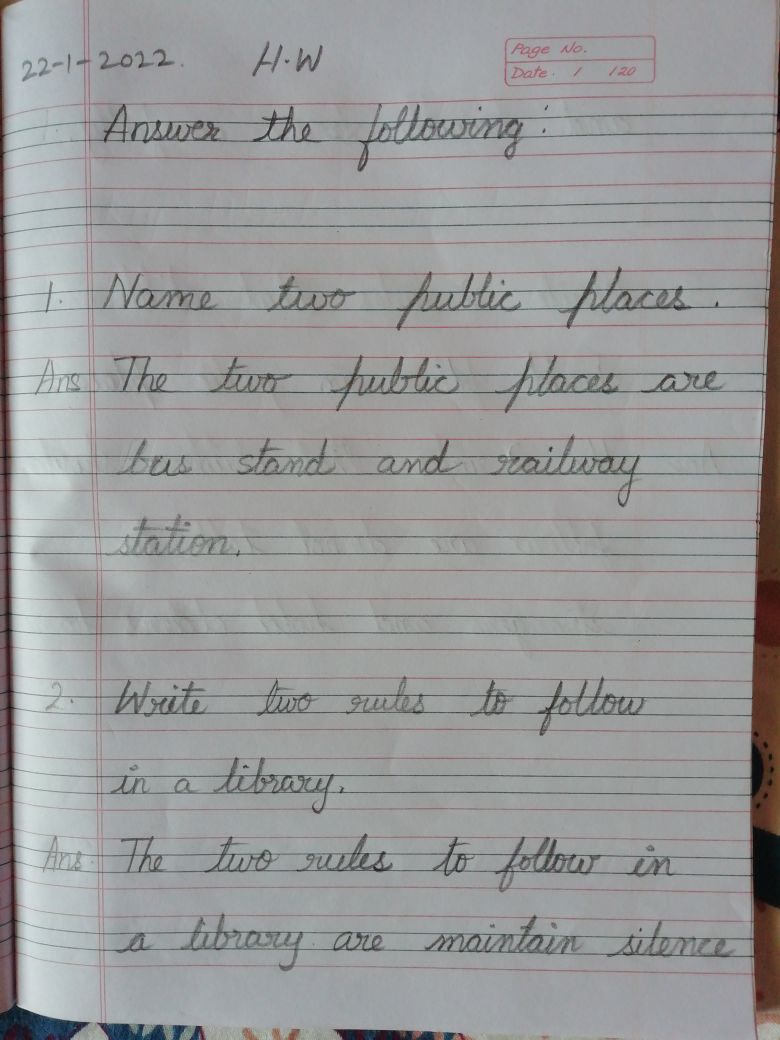 22-1-2022. H.W
Page No.
Date. / /20
Answer the following:
1. Name two public places.
Ans The two public places are
bus stand and railway
station.
2. Write two rules to follow
in a library.
Ans. The two rules to follow in
a library are maintain silence